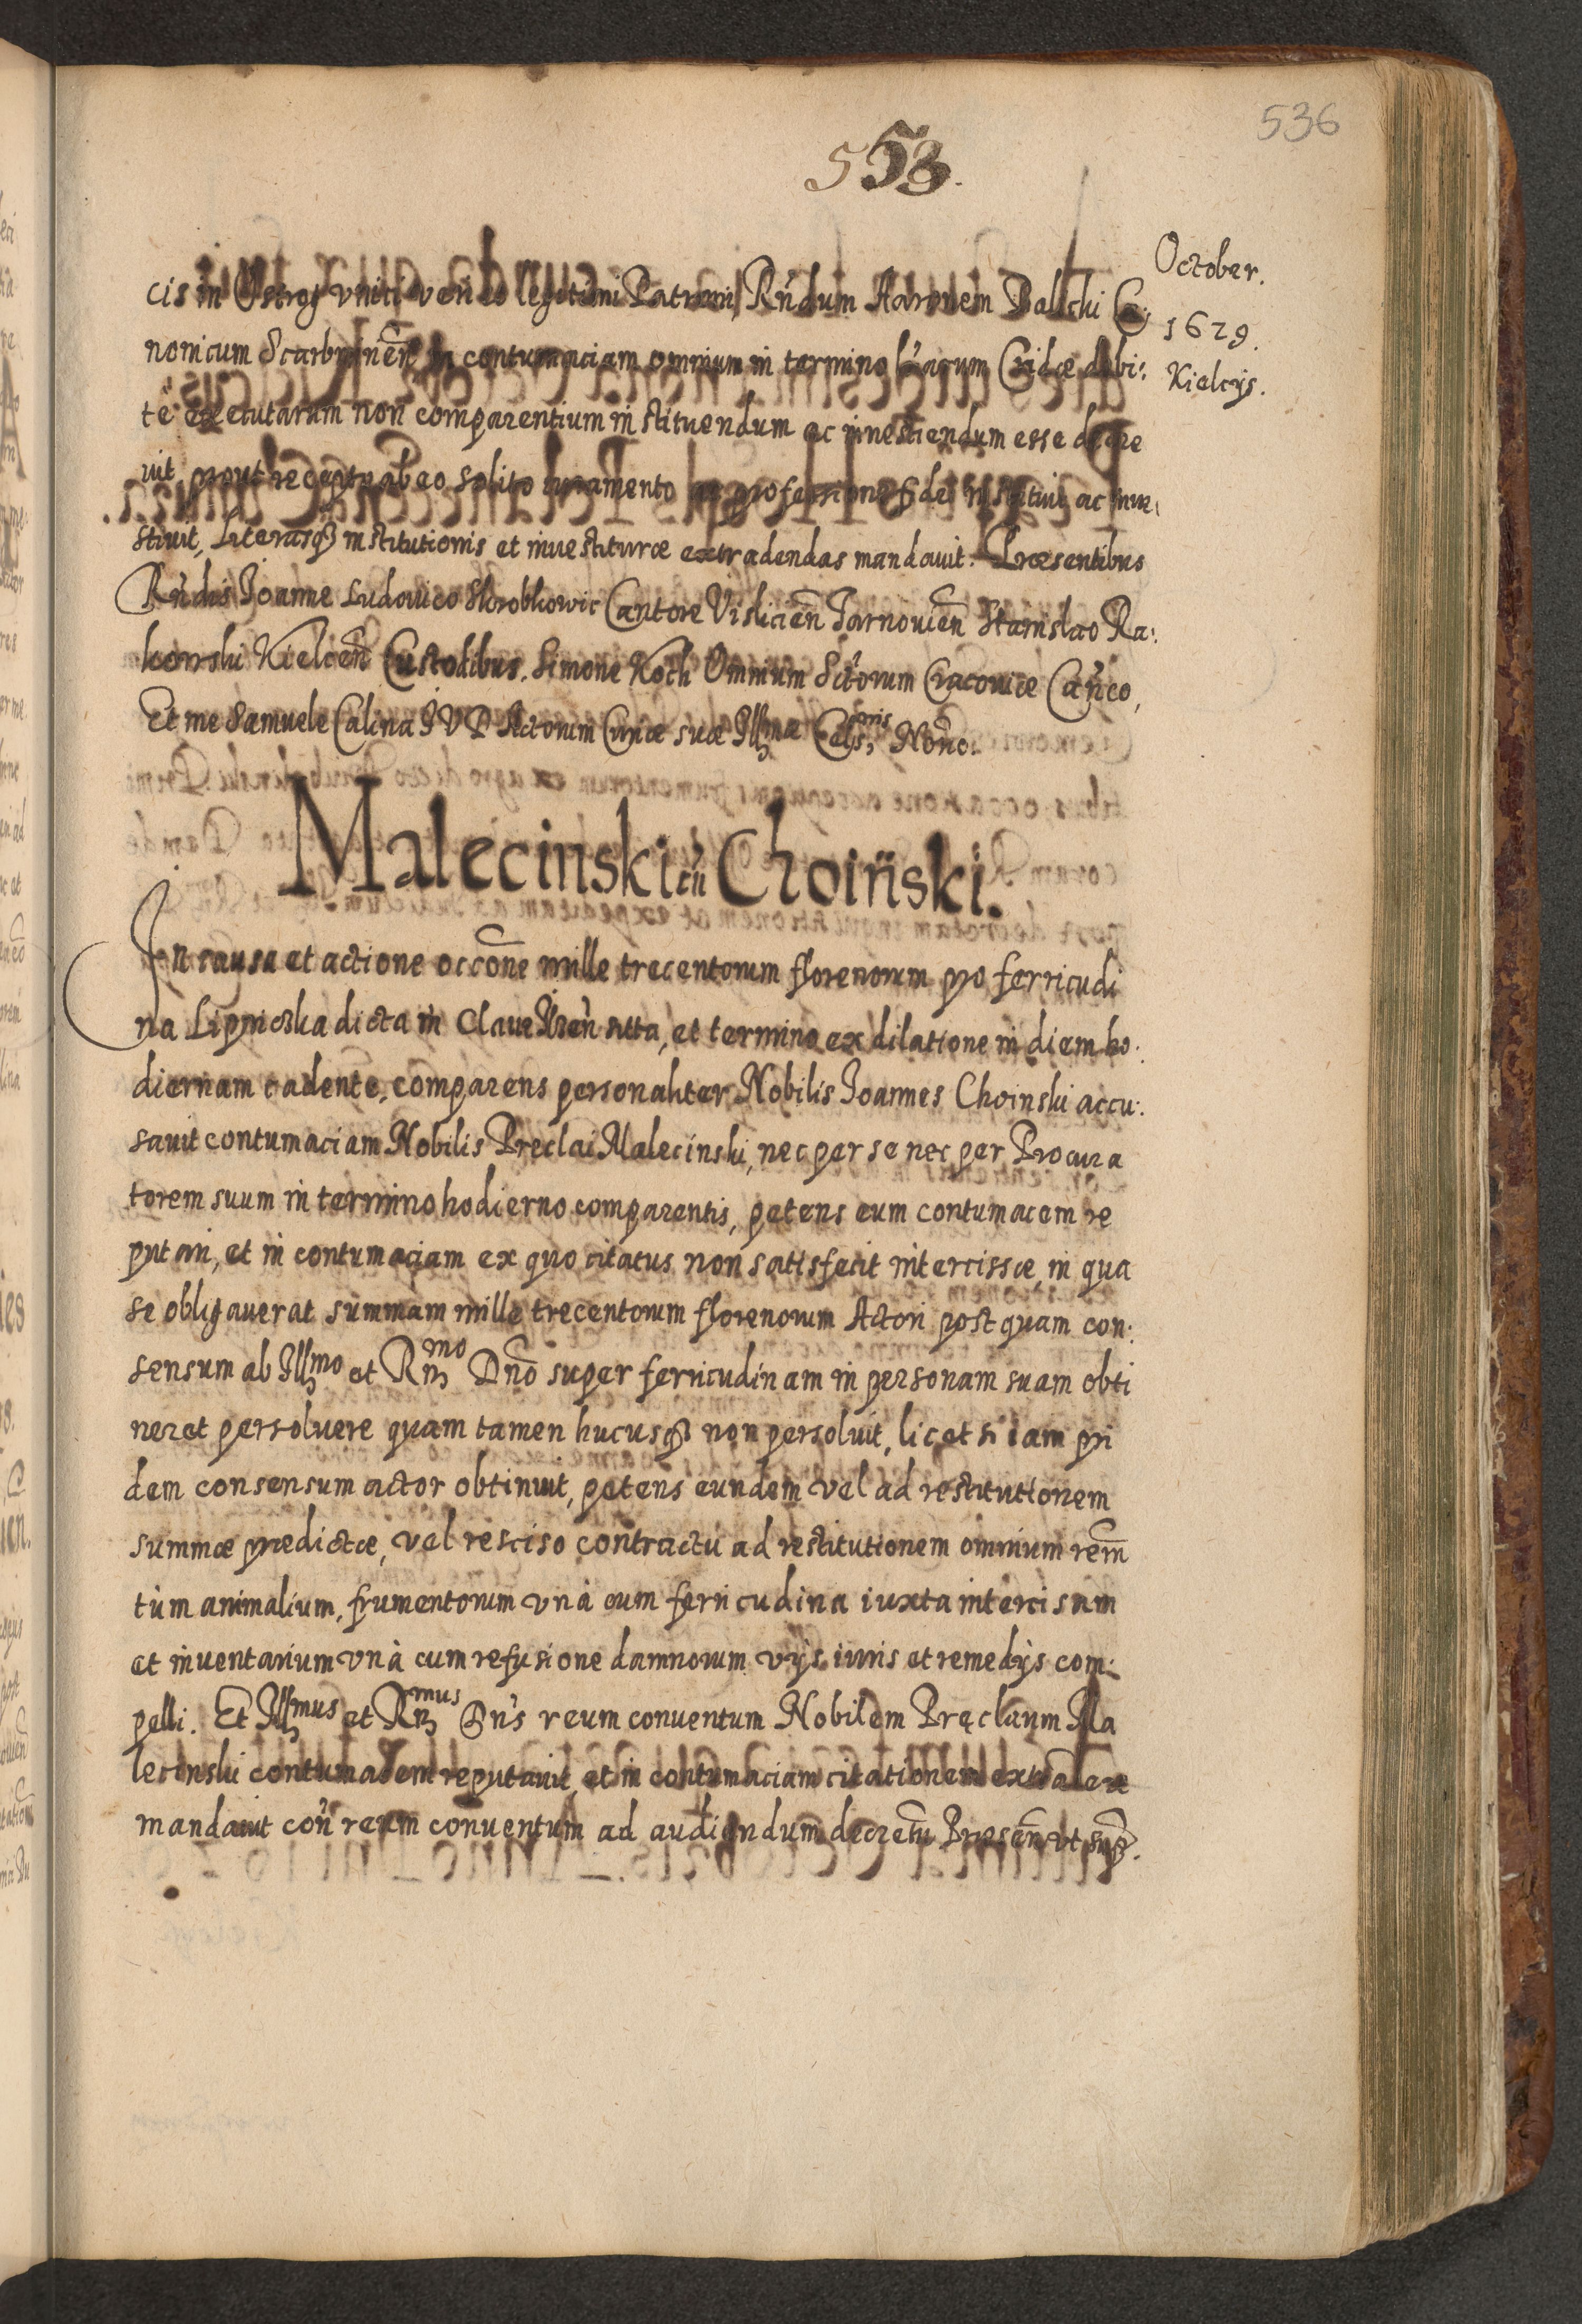 536
553.
October.
1629.
Kielcijs.
cis in Ostrog vniti veri et legitimi Patroni, Rńdum Aaronem Balicki Ca:
nonicum Scarbimireń in contumaciam omnium in termino lrarum Cridae debi:
te executarum non comparentium instituendum ac inuestiendum esse decre
uit, prout recepto ab eo solito iuramento ac professione fidei instituit ac inue
stiuit, Literasq3 institutionis et inuestiturae extradendas mandauit. Praesentibus
Rńdis Joanne Ludouico Skrobkowic Cantore Visliceń Tarnouień Stanislao Ra:
kowski Kielceń Custodibus. Simone Koch Omnium Sctorum Cracouiae Cańco,
Et me Samuele Calina JVD Actorum Curiae suae Illmae Cels,onis Notrio.
Malecinski cū Choinski.
In causa et actione occōne mille trecentorum florenorum pro ferricudi
na Lipniczka dicta in Claue Ilzeń sitta, et termino ex dilatione in diem ho:
diernam cadente, comparens personaliter Nobilis Joannes Choinski accu:
sauit contumaciam Nobilis Preclai Malecinski, nec per se nec per Procura
torem suum in termino hodierno comparentis, petens eum contumacem re
putari, et in contumaciam ex quo citatus non satisfecit intercissae, in qua
se obligauerat summam mille trecentorum florenorum Actori postquam con:
sensum ab Illmo et Rmo Dno super ferricudinam in personam suam obti
neret persoluere quam tamen hucusq3 non persoluit, licet si iam pri
dem consensum actor obtinuit, petens eundem vel ad restitutionem
summae praedictae, vel resciso contractu ad restitutionem omnium rerm̄
tum animalium, frumentorum vnà cum ferricudina iuxta intercisam
et inuentarium vnà cum refusione damnorum vijs iuris et remedijs com:
pelli. Et Illmus et Rmus Dńs reum conuentum Nobilem Pręclaum Ma
lecinski contumacem reputauit, et in contumaciam citationem extradere
mandauit coń reum conuentum ad audiendum decretū Praeseń vt sup.